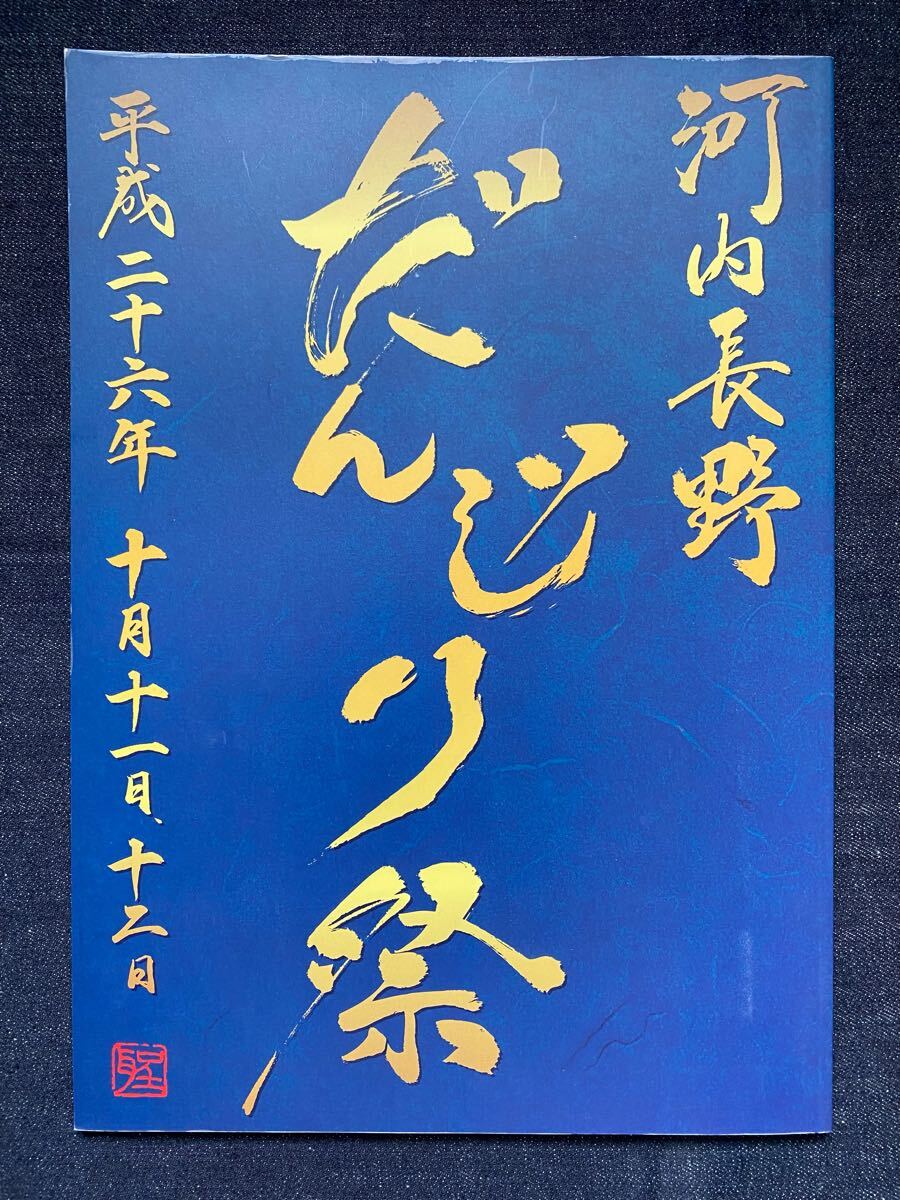 河内長野
だんじり祭
平成二十六年 十月十一日、十二日
聖